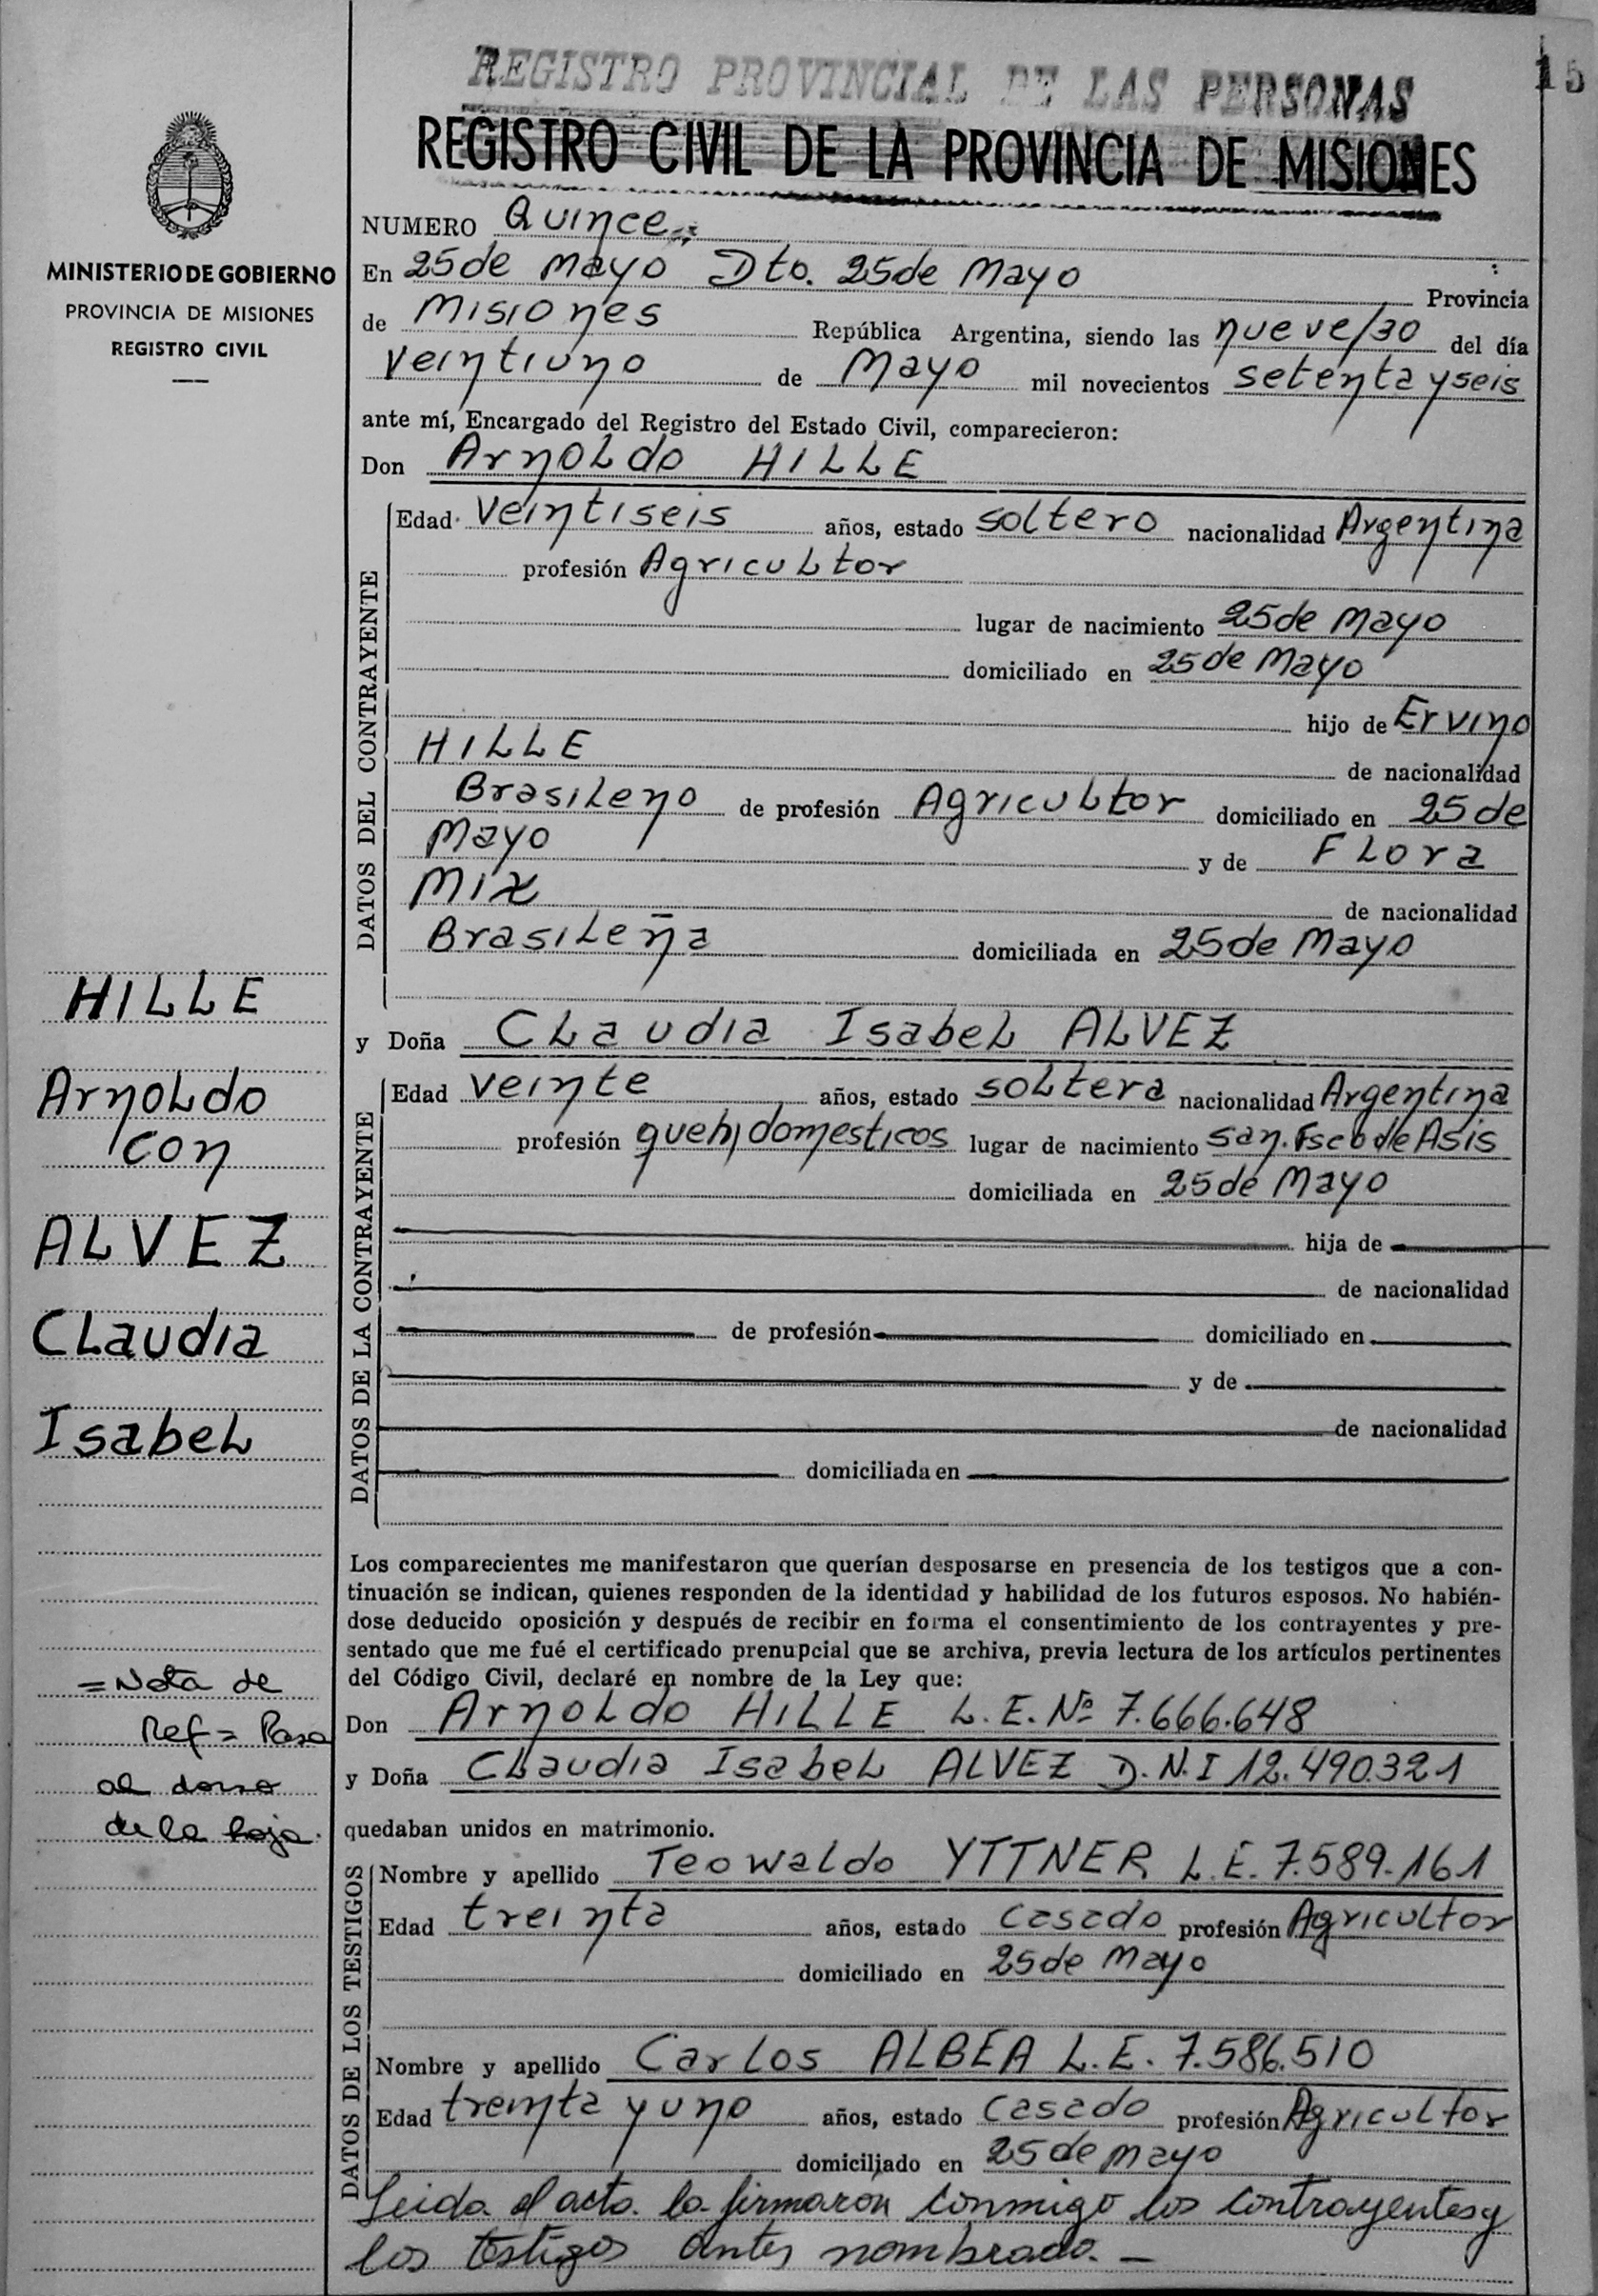 15
REGISTRO PROVINCIAL DE LAS PERSONAS
REGISTRO CIVIL DE LA PROVINCIA DE MISIONES
MINISTERIO DE GOBIERNO
PROVINCIA DE MISIONES
REGISTRO CIVIL
NUMERO Quince
En 25 de Mayo Dto. 25 de Mayo Provincia
de Misiones República Argentina, siendo las nueve/30 del día
Veintiuno de Mayo mil novecientos setenta y seis
ante mí, Encargado del Registro del Estado Civil, comparecieron:
Don Arnoldo HILLE
DATOS DEL CONTRAYENTE
Edad Veintiseis años, estado soltero nacionalidad Argentina
profesión Agricultor
lugar de nacimiento 25 de Mayo
domiciliado en 25 de Mayo
hijo de Ervino
HILLE de nacionalidad
Brasileño de profesión Agricultor domiciliado en 25 de
Mayo y de Flora
Mix de nacionalidad
Brasileña domiciliada en 25 de Mayo
y Doña Claudia Isabel ALVEZ
DATOS DE LA CONTRAYENTE
Edad Veinte años, estado soltera nacionalidad Argentina
profesión queh/domesticos lugar de nacimiento San. Fsco de Asis
domiciliada en 25 de Mayo
hija de
de nacionalidad
de profesión domiciliado en
y de
de nacionalidad
domiciliada en
HILLE
Arnoldo
con
ALVEZ
Claudia
Isabel
Los comparecientes me manifestaron que querían desposarse en presencia de los testigos que a con-
tinuación se indican, quienes responden de la identidad y habilidad de los futuros esposos. No habién-
dose deducido oposición y después de recibir en forma el consentimiento de los contrayentes y pre-
sentado que me fué el certificado prenupcial que se archiva, previa lectura de los artículos pertinentes
del Código Civil, declaré en nombre de la Ley que:
Don Arnoldo HILLE L.E. Nº 7.666.648
y Doña Claudia Isabel ALVEZ D.N.I 12.490.321
quedaban unidos en matrimonio.
=Nota de
Ref= Pasa
al dorso
de la hoja.
DATOS DE LOS TESTIGOS
Nombre y apellido Teowaldo YTTNER L.E. 7.589.161
Edad treinta años, estado Casado profesión Agricultor
domiciliado en 25 de Mayo
Nombre y apellido Carlos ALBEA L.E. 7.586.510
Edad treinta y uno años, estado Casado profesión Agricultor
domiciliado en 25 de mayo
Leida el acta la firmaron conmigo los contrayentes y
los testigos antes nombrado.—